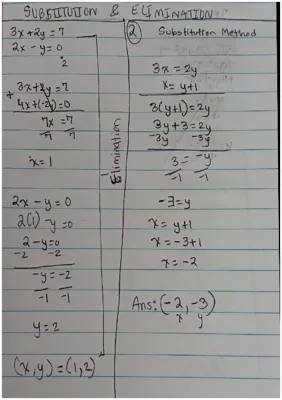 SUBSTITUTION & ELIMINATION
3x+2y=7
2x-y=0
2
3x+2y=7
+ 4x+(-2y)=0
7x = 7
7 7
x=1
2x-y=0
2(1)-y=0
2-y=0
-2 -2
-y=-2
-1 -1
y=2
(x,y)=(1,2)
Elimination
2 Substitution Method
3x=2y
x=y+1
3(y+1)=2y
3y+3=2y
-3y -3y
3=-y
-1 -1
-3=y
x=y+1
x=-3+1
x=-2
Ans: (-2,-3)
x y